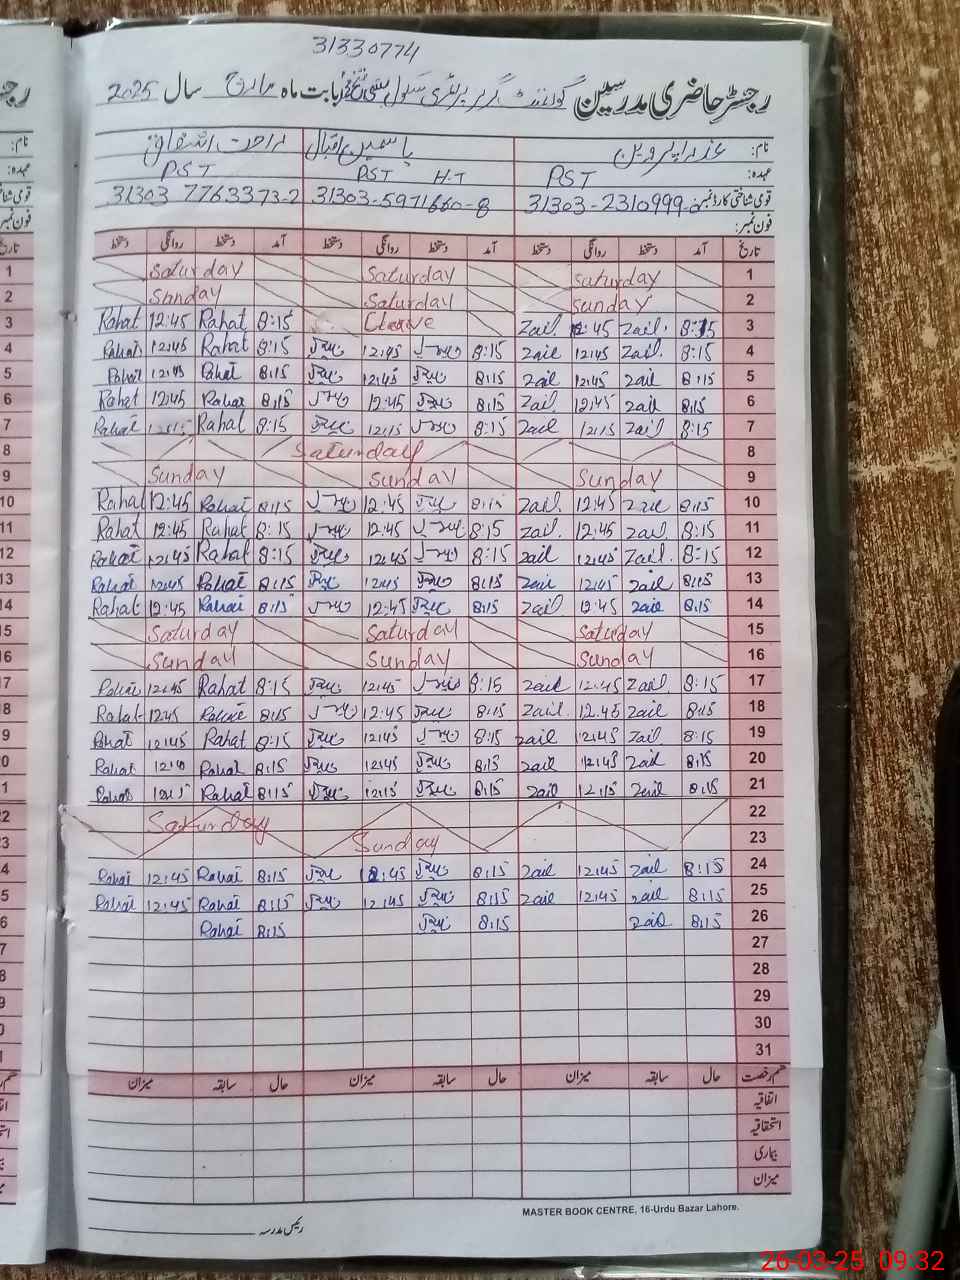 31330774
رجسٹر حاضری مدرسین گورنمنٹ گرلز پرائمری سکول بستی بابت ماہ مارچ سال 2025
نام: عذرا پروین یاسمین اقبال راحت اشفاق
عہدہ: PST PST H.T PST
قومی شناختی کارڈ نمبر: 31303-2310999- 31303-5971660-8 31303 7763373-2
فون نمبر:
تاریخ آمد دستخط روانگی دستخط آمد دستخط روانگی دستخط آمد دستخط روانگی دستخط
Saturday Saturday Saturday 1
Sunday Saturday Sunday 2
Rahat 12:45 Rahat 8:15 Leave Zail. 12:45 Zail. 8:15 3
Rahat 12:45 Rahat 8:15 12:45 8:15 Zail 12:45 Zail. 8:15 4
Rahat 12:45 Rahat 8:15 12:45 8:15 Zail 12:45 Zail 8:15 5
Rahat 12:45 Rahat 8:15 12:45 8:15 Zail. 12:45 Zail 8:15 6
Rahat 12:15 Rahat 8:15 12:15 8:15 Zail 12:15 Zail 8:15 7
Saturday 8
Sunday Sunday Sunday 9
Rahat 12:45 Rahat 8:15 12:45 8:15 Zail. 12:45 Zail 8:15 10
Rahat 12:45 Rahat 8:15 12:45 8:15 Zail. 12:45 Zail. 8:15 11
Rahat 12:45 Rahat 8:15 12:45 8:15 Zail 12:45 Zail. 8:15 12
Rahat 12:45 Rahat 8:15 12:45 8:15 Zail 12:45 Zail 8:15 13
Rahat 12:45 Rahat 8:15 12:45 8:15 Zail 12:45 Zail 8:15 14
Saturday Saturday Saturday 15
Sunday Sunday Sunday 16
Rahat 12:45 Rahat 8:15 12:45 8:15 Zail 12:45 Zail. 8:15 17
Rahat 12:45 Rahat 8:15 12:45 8:15 Zail. 12:45 Zail 8:15 18
Rahat 12:45 Rahat 8:15 12:45 8:15 Zail 12:45 Zail. 8:15 19
Rahat Rahat 8:15 12:45 8:15 Zail 12:45 Zail 8:15 20
Rahat 12:15 Rahat 8:15 12:15 8:15 Zail 12:15 Zail 8:15 21
Saturday 22
Sunday 23
Rahat 12:45 Rahat 8:15 12:45 8:15 Zail 12:45 Zail 8:15 24
Rahat 12:45 Rahat 8:15 12:45 8:15 Zail 12:45 Zail 8:15 25
Rahat 8:15 8:15 Zail 8:15 26
27
28
29
30
31
قسم رخصت حال سابقہ میزان حال سابقہ میزان حال سابقہ میزان
اتفاقیہ
استحقاقیہ
بیماری
میزان
MASTER BOOK CENTRE, 16-Urdu Bazar Lahore.
رئیس مدرسہ
26-03-25 09:32